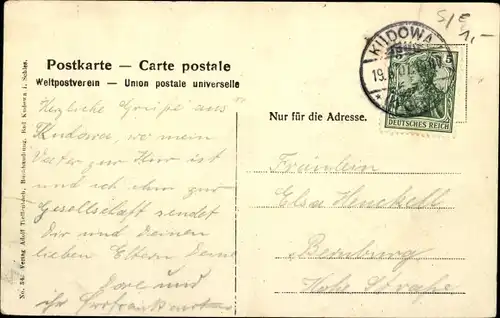 S/E
1,-
Postkarte — Carte postale
Weltpostverein — Union postale universelle
KUDOWA
19.
5
DEUTSCHES REICH
Nur für die Adresse.
Herzliche Grüße aus
Kudowa, wo mein
Vater zur Kur ist
und ich ihm zur
Gesellschaft sendet
Dir und Deinen
lieben Eltern Deine
und
ihr
Fräulein
Elsa Henckell
Bernburg
Hohe Straße
No. 54. Verlag Adolf Buchhandlung, Bad Kudowa i. Schles.